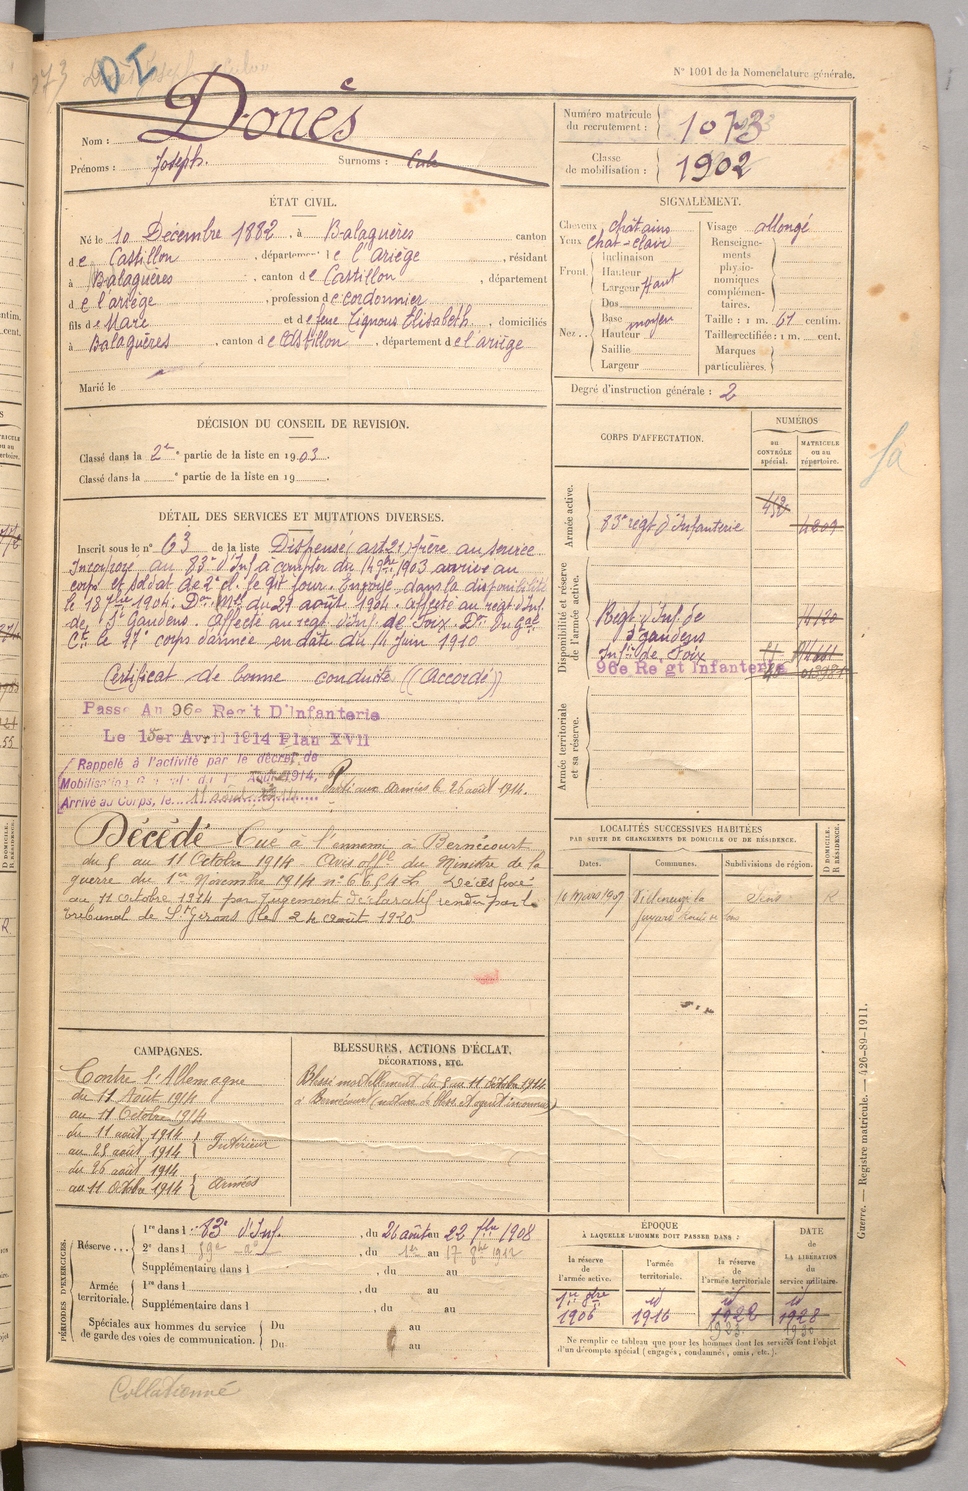 DI
N° 1001 de la Nomenclature générale.
Nom : Donès
Prénoms : Joseph. Surnoms :
Numéro matricule du recrutement : 1073
Classe de mobilisation : 1902
ÉTAT CIVIL.
Né le 10 Décembre 1882, à Balaguères canton
de Castillon, département de l'Ariège, résidant
à Balaguères, canton de Castillon, département
de l'ariège, profession de cordonnier
fils de Marc et de feue Lignous Élisabeth, domiciliés
à Balaguères, canton de Castillon, département de l'ariège
Marié le
SIGNALEMENT.
Cheveux chatains
Yeux chat-clair
Front
Inclinaison
Hauteur
Largeur haut
Nez
Dos
Base moyen
Hauteur
Saillie
Largeur
Visage allongé
Renseignements physionomiques complémentaires.
Taille : 1 m. 61 centim.
Taille rectifiée : 1 m. cent.
Marques particulières.
Degré d'instruction générale : 2
DÉCISION DU CONSEIL DE REVISION.
Classé dans la 2e partie de la liste en 1903.
Classé dans la e partie de la liste en 19
DÉTAIL DES SERVICES ET MUTATIONS DIVERSES.
Inscrit sous le n° 63 de la liste Dispensé (art 21) frère au service
Incorporé au 83e d'Inf à compter du 14 9bre 1903 arrivé au
corps et soldat de 2e cl. le dit jour. Envoyé dans la disponibilité
le 18 7bre 1904. Don Mel du 27 août 1904. Affecté au regt d'Inf.
de St Gaudens. Affecté au regt d'Inf de Foix. Don Du Gal
Ct le 17e corps d'armée en date du 14 Juin 1910
Certificat de bonne conduite ((Accordé))
Passé Au 96e Reg't D'Infanterie
Le 15er Avril 1914 Plan XVII
Rappelé à l'activité par le décret de
Mobilisation Générale du 1er Août 1914,
Arrivé au Corps, le 11 août 1914
Parti aux armées le 26 août 1914.
Décédé Tué à l'ennemi à Bernécourt
du 5 au 11 Octobre 1914 Avis offel du Ministre de la
guerre du 1er Novembre 1914 n° 6654 L. Décès fixé
au 11 Octobre 1914 par jugement déclaratif rendu par le
tribunal de St Girons le 24 août 1920
CORPS D'AFFECTATION.
NUMÉROS
au CONTRÔLE spécial.
MATRICULE ou au répertoire.
Armée active.
83e régt d'Infanterie 4209
Disponibilité et réserve de l'armée active.
Regt d'Inf. de St gaudens
Infie de Foix
96e Re gt Infanterie
Armée territoriale et sa réserve.
LOCALITÉS SUCCESSIVES HABITÉES
PAR SUITE DE CHANGEMENTS DE DOMICILE OU DE RÉSIDENCE.
D DOMICILE. R RÉSIDENCE.
Dates. Communes. Subdivisions de région.
10 Mars 1907 R
CAMPAGNES.
Contre l'Allemagne
du 11 Août 1914
au 11 Octobre 1914
du 11 août 1914
au 25 août 1914 Intérieur
du 26 août 1914
au 11 Octobre 1914 Armées
BLESSURES, ACTIONS D'ÉCLAT, DÉCORATIONS, ETC.
Blessé mortellement du 5 au 11 Octobre 1914
à Bernécourt (nature de bless. et agent inconnus)
PÉRIODES D'EXERCICES.
Réserve
1re dans l 83e d'Inf., du 26 août au 22 7bre 1908
2e dans l 59e, du 1er au 17 8bre 1912
Supplémentaire dans l, du au
Armée territoriale.
1re dans l, du au
Supplémentaire dans l, du au
Spéciales aux hommes du service de garde des voies de communication.
Du au
Du au
ÉPOQUE À LAQUELLE L'HOMME DOIT PASSER DANS :
la réserve de l'armée active.
l'armée territoriale.
la réserve de l'armée territoriale
DATE de LA LIBÉRATION du service militaire.
1er 8bre 1906
id 1916
id 1922
id 1928
Ne remplir ce tableau que pour les hommes dont les services font l'objet d'un décompte spécial (engagés, condamnés, omis, etc.).
Guerre. — Registre matricule. — 426-89-1911.
Collationné